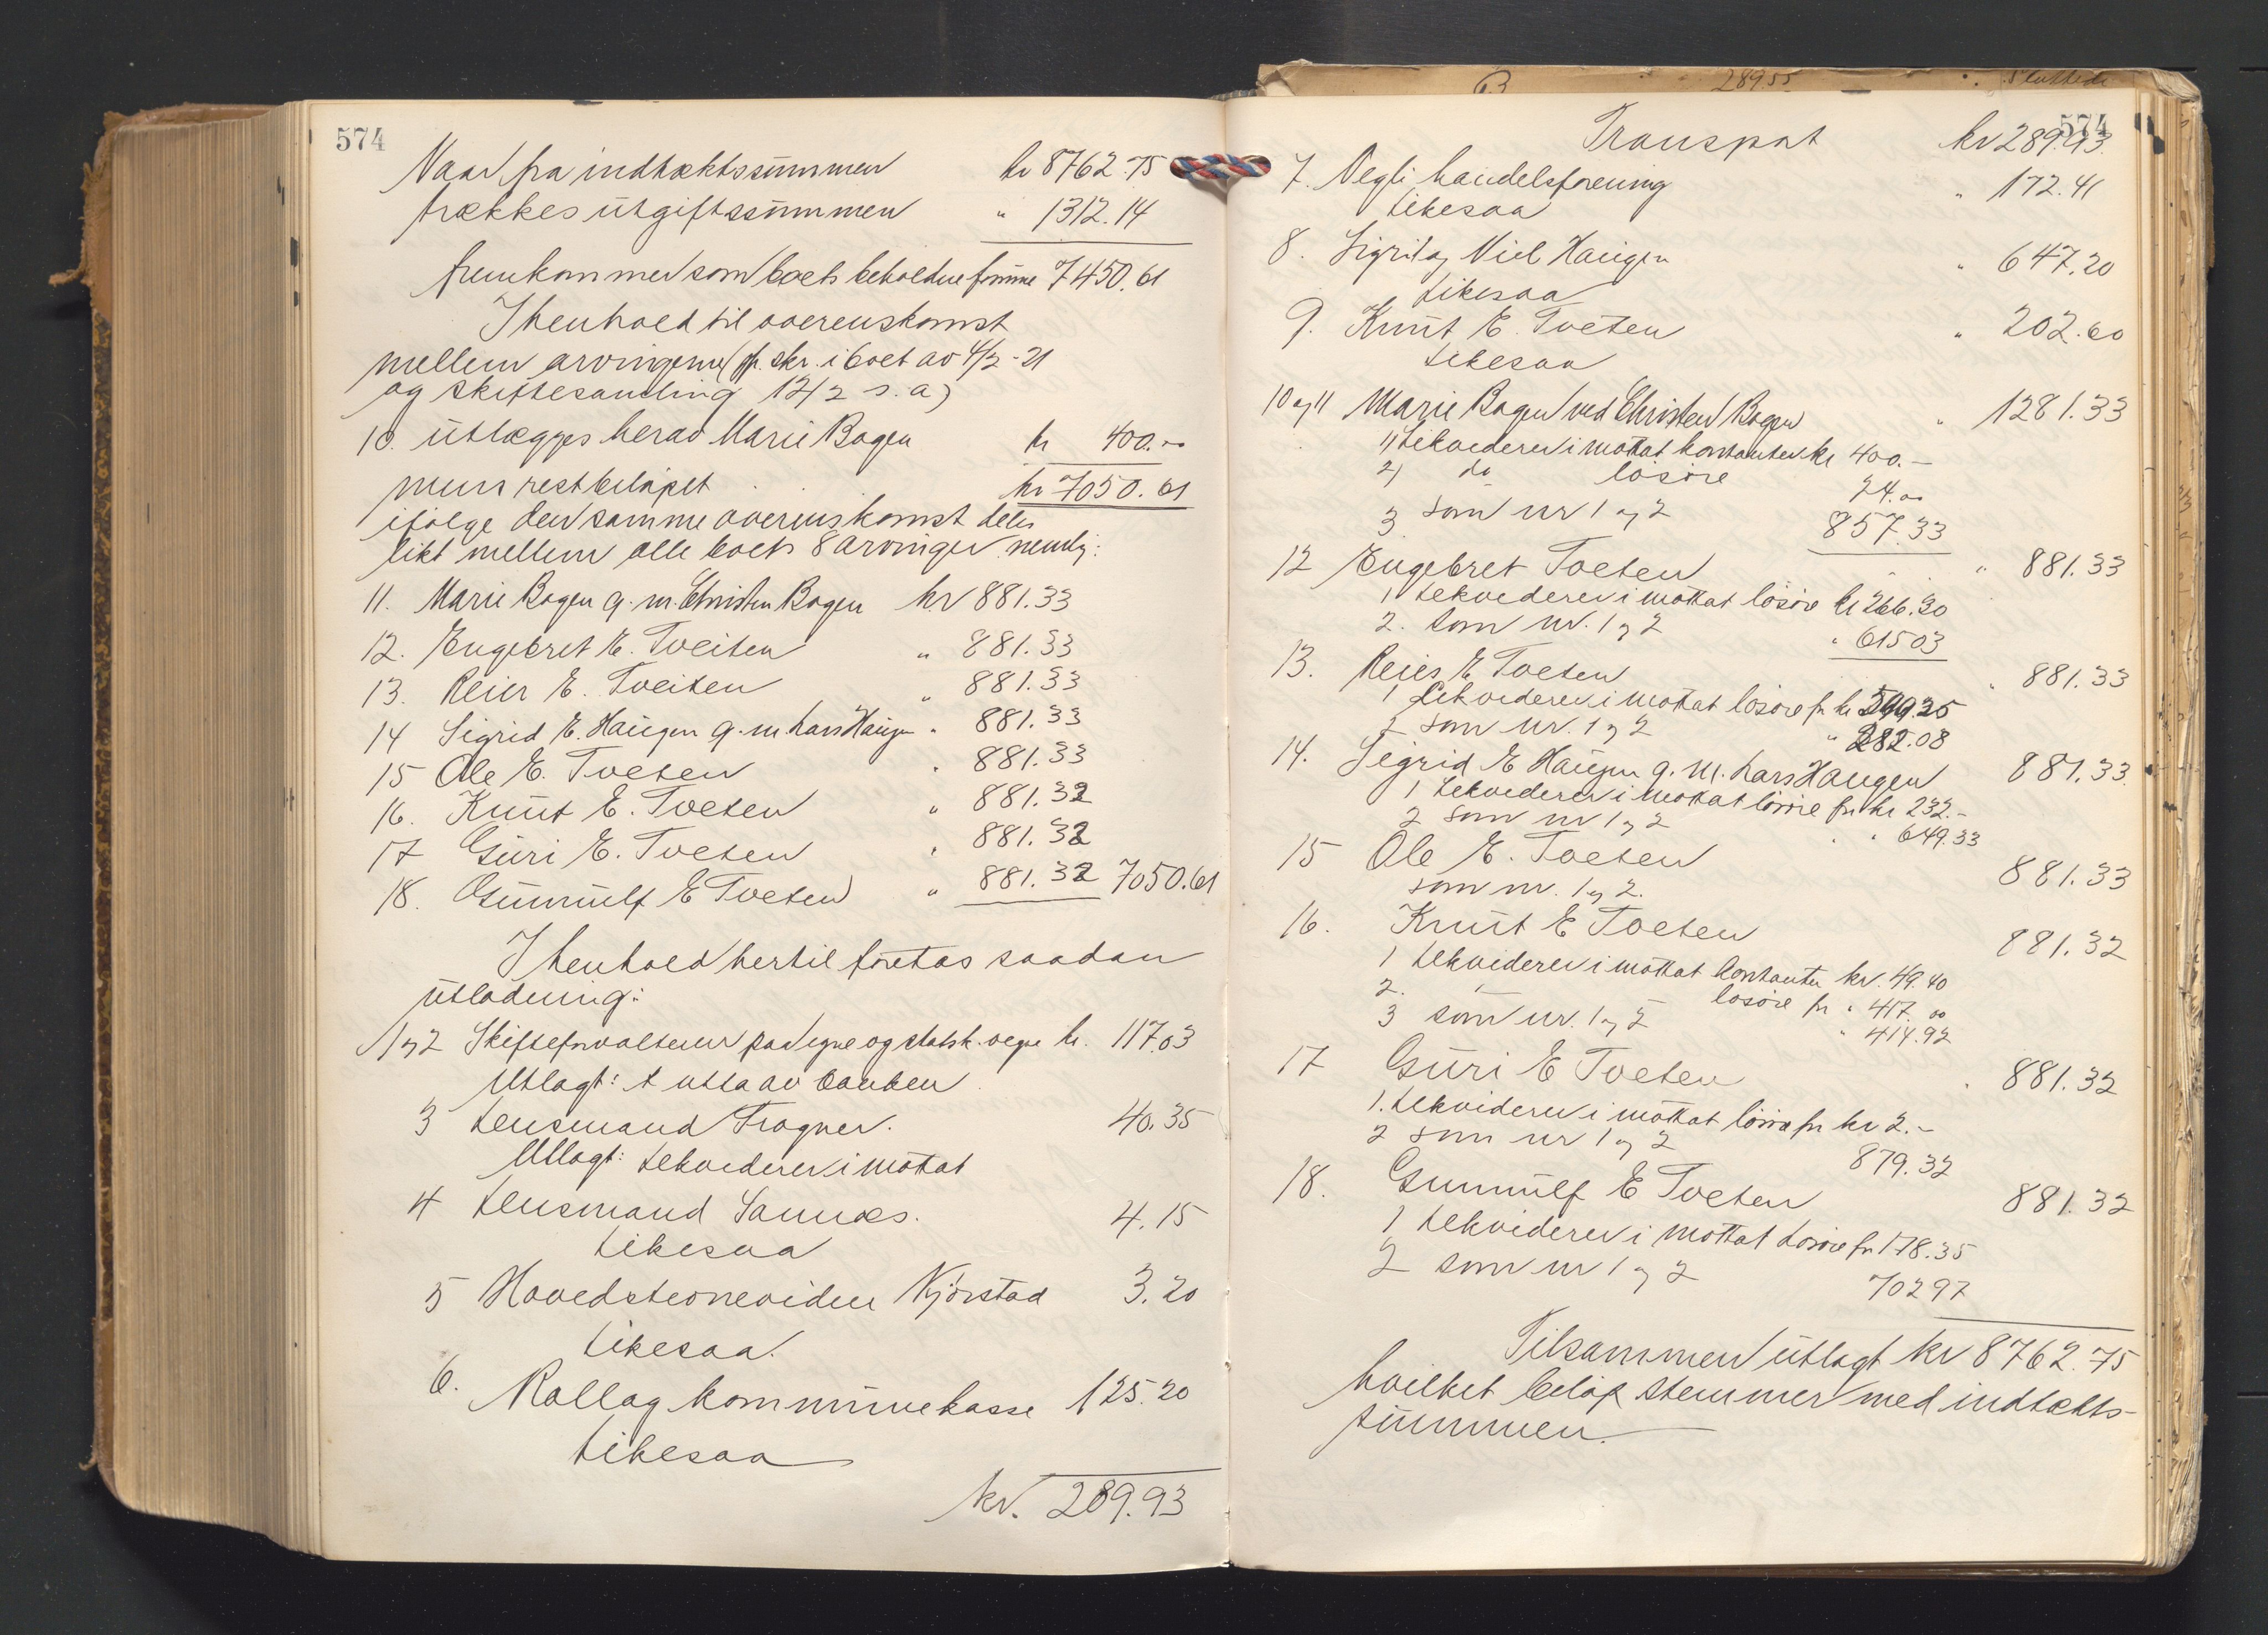 574
Naar fra indtæktssummen kr 8762.75
trækkes utgiftssummen " 1312.14
fremkommer som boets beholdne formue 7450.61
I henhold til overenskomst
mellem arvingerne (jfr. skr. i boet av 4/2-21
og skiftesamling 12/2 s.a)
10. utlægges herav Marie Bagen kr 400.00
mens restbeløpet kr 7050.61
ifølge den samme overenskomst deles
likt mellem alle boets 8 arvinger nemlig:
11. Marie Bagen g.m. Christen Bagen kr 881.33
12. Engebret E. Tveiten " 881.33
13. Reier E. Tveiten " 881.33
14 Sigrid E. Haugen g.m. Lars Haugen " 881.33
15 Ole E. Tveten " 881.33
16. Knut E. Tveten " 881.32
17 Guri E. Tveten " 881.32
18. Gunnulf E Tveten " 881.32 7050.61
I henhold hertil foretas saadan
utlodning:
1 og 2 Skifteforvalteren paa egne og statsk. vegne kr. 117.03
Utlagt: t utta av banken
3 Lensmand Frogner. 40.35
Utlagt: Lekviderer i mottat
4 Lensmand Sannæs. 4.15
Likesaa
5 Hovedstevnevidne Kjørstad 3.20
Likesaa.
6. Rollag kommunekasse 125.20
Likesaa
kr. 289.93
28955
574
Transport kr 289.93.
7. Vegli handelsforening " 172.41
Likesaa
8. Sigrid og Niel Haugen " 647.20
Likesaa
9. Knut E. Tveten " 202.60
Likesaa
10 og 11 Marie Bagen ved Christen Bagen " 1281.33
1) Lekviderer i mottat kontanter kr 400.-
2) do løsøre 24.00
3 som nr 1 og 2 857.33
12 Engebret Tveten " 881.33
1 Lekviderer i mottat løsøre kr 266.30
2. som nr. 1 og 2 " 615 03
13. Reier E Tveten " 881.33
1 Lekviderer i mottat løsøre for kr 599.25
2 som nr. 1 og 2 " 282.08
14. Sigrid E Haugen g.m. Lars Haugen 881.33
1 Lekviderer i mottat løsøre for kr 232.-
2 som nr 1 og 2 " 649.33
15 Ole E. Tveten 881.33
som nr. 1 og 2.
16. Knut E Tveten 881.32
1 Lekviderer i mottat kontanter kr. 49.40
2. løsøre for " 417.00
3 som nr. 1 og 2 " 414.92
17 Guri E Tveten " 881.32
1. Lekviderer i mottat løsøre for kr 2.-
2 som nr 1 og 2 879.32
18. Gunnulf E Tveten 881.32
1 Lekviderer i mottat Løsøre for 178.35
2 som nr 1 og 2 702 97
Tilsammen utlagt kr 8762.75
hvilket beløp stemmer med indtækts-
summen.